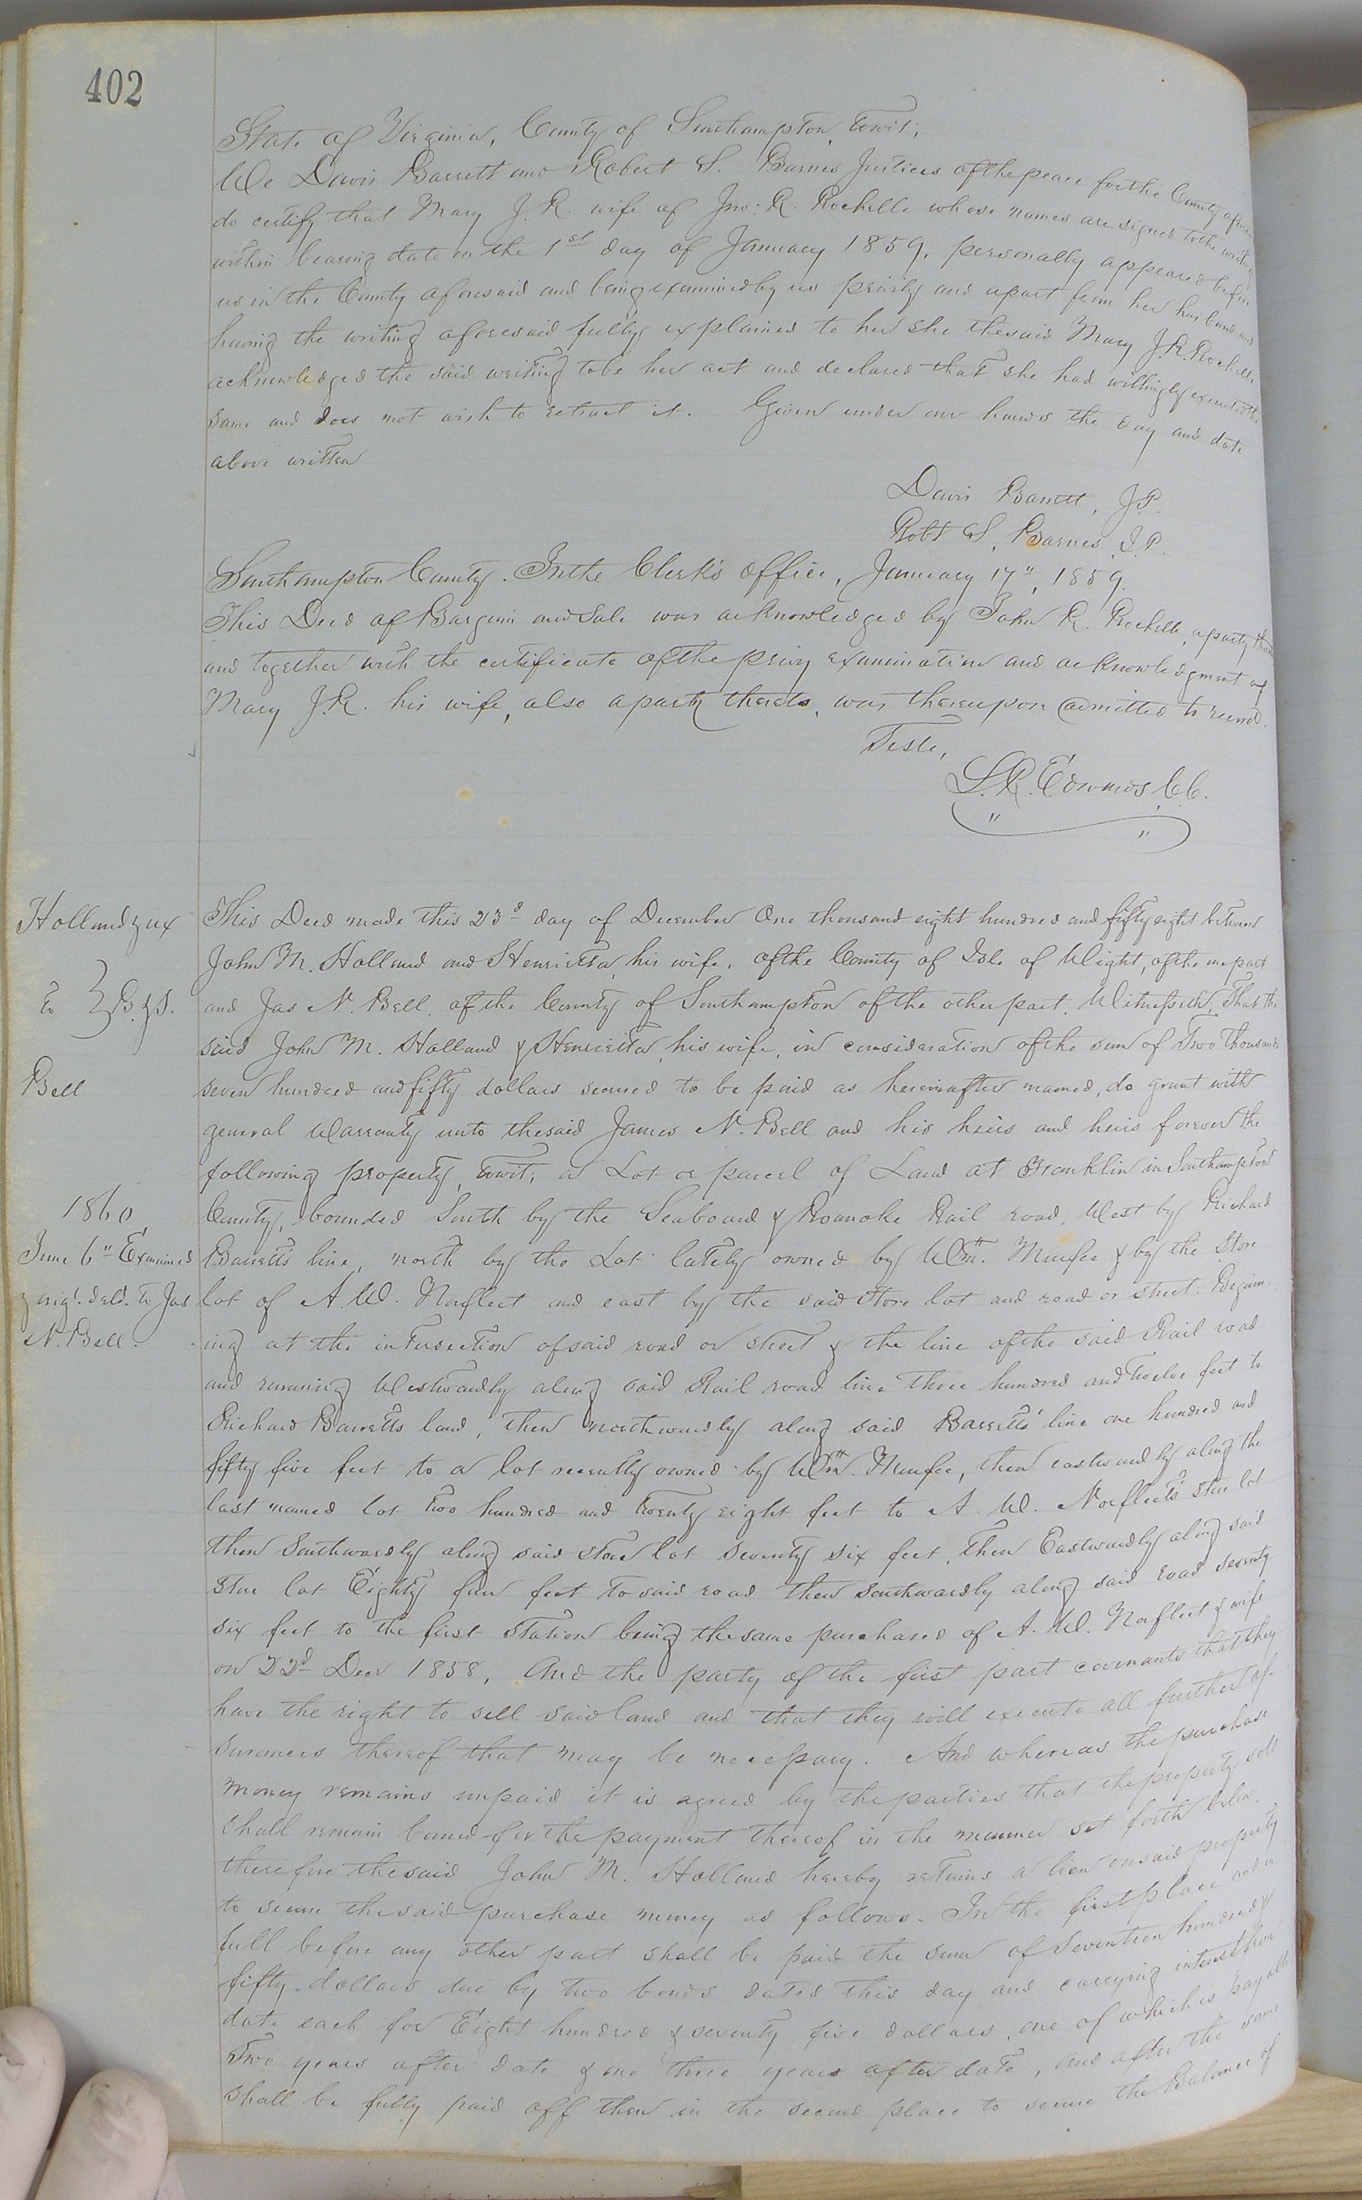 402
State of Virginia, County of Southampton, towit;
We Davis Barrett and Robert S. Barnes Justices of the peace for the County
do certify that Mary J. R. wife of Jno: R. Rochelle whose names are signed to the writing
within bearing date on the 1st day of January 1859, personally appeared before
us in the County aforesaid and being examined by us privily and apart from her husband and
having the writing aforesaid fully explained to her she the said Mary J. R. Rochelle
acknowledged the said writing to be her act and declared that she had willingly executed the
same and does not wish to retract it. Given under our hands the day and date
above written
Davis Barrett, J.P.
Robt S. Barnes, J.P.
Southampton County. In the Clerk's office, January 17", 1859.
This Deed of Bargain and Sale was acknowledged by John R. Rochelle, a party
and together with the certificate of the privy examination and acknowledgment of
Mary J. R. his wife, also a party thereto, was thereupon admitted to record.
Teste,
L. R. Edwards C.C.
Holland & ux
to } B. & S.
Bell
1860,
June 6" Examined
& orig!. deld. to Jas
N. Bell.
This Deed made this 23d day of December One thousand eight hundred and fifty eight between
John M. Holland and Henrietta, his wife, of the County of Isle of Wight, of the one part
and Jas N. Bell, of the County of Southampton of the other part, Witnesseth, That the
said John M. Holland & Henrietta, his wife, in consideration of the sum of Two thousand
seven hundred and fifty dollars secured to be paid as hereinafter named, do grant with
general Warranty unto the said James N. Bell and his heirs and heirs forever the
following property, towit; a Lot or parcel of Land at Franklin in Southampton
County, bounded South by the Seaboard & Roanoke Rail road, West by Richard
Barretts line, north by the Lot lately owned by Wm. Murfee & by the Store
lot of A. W. Norfleet and east by the said Store lot and road or street. Beginn-
ing at the intersection of said road or street & the line of the said Rail road
and running Westwardly along said Rail road line three hundred and twelve feet to
Richard Barretts land, then northwardly along said Barretts' line one hundred and
fifty five feet to a lot recently owned by Wm. Murfee, then eastwardly along the
last named lot two hundred and twenty eight feet to A. W. Norfleets' store lot
then Southwardly along said store lot seventy six feet, Then Eastwardly along said
store lot Eighty four feet to said road then southwardly along said road seventy
six feet to the first station being the same purchased of A. W. Norfleet & wife
on 22d Decr 1858, And the party of the first part covenants that they
have the right to sell said land and that they will execute all further as-
surances thereof that may be necessary. And whereas the purchase
money remains unpaid it is agreed by the parties that the property sold
shall remain bound for the payment thereof in the manner set forth below.
therefore the said John M. Holland hereby retains a lien on said property
to secure the said purchase money as follows. In the first place and in
full before any other part shall be paid the sum of Seventeen hundred &
fifty dollars due by two bonds dated this day and carrying interest from
date each for Eight hundred & seventy five dollars, one of which is payable
Two years after date & one three years after date, and after the same
shall be fully paid off then in the second place to secure the Balance of